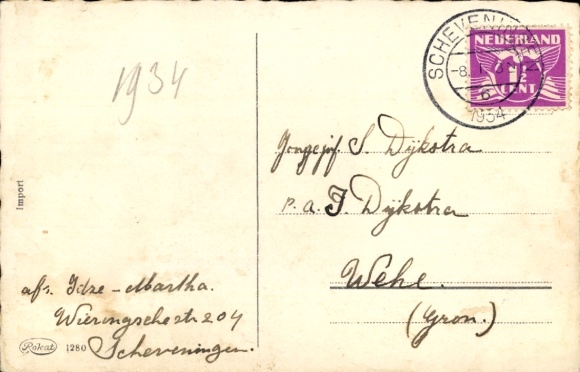 1934
SCHEVENINGEN
-8.I.3
6
1934
NEDERLAND
1½
CENT
Jongejuf. S. Dijkstra
p.a. J. Dijkstra
Wehe.
(Gron.)
Import
afs. Idze-Martha.
Wieringschestr 204
Scheveningen.
Rokat 1280